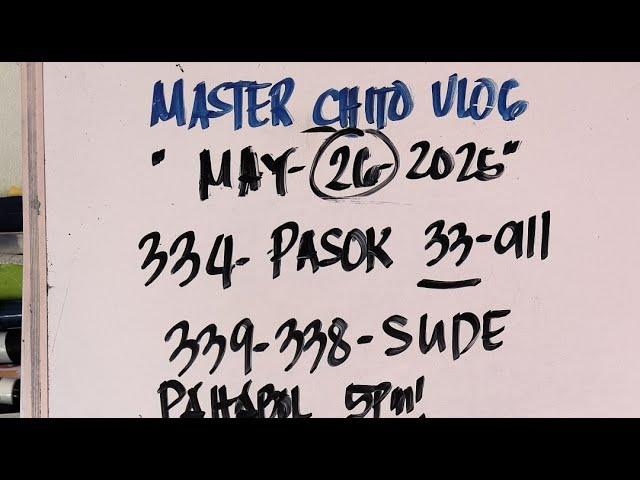 MASTER CHITO VLOG
" MAY-26-2025"
334- PASOK 33-all
339-338-SUDE
PAHABOL 5Pm!